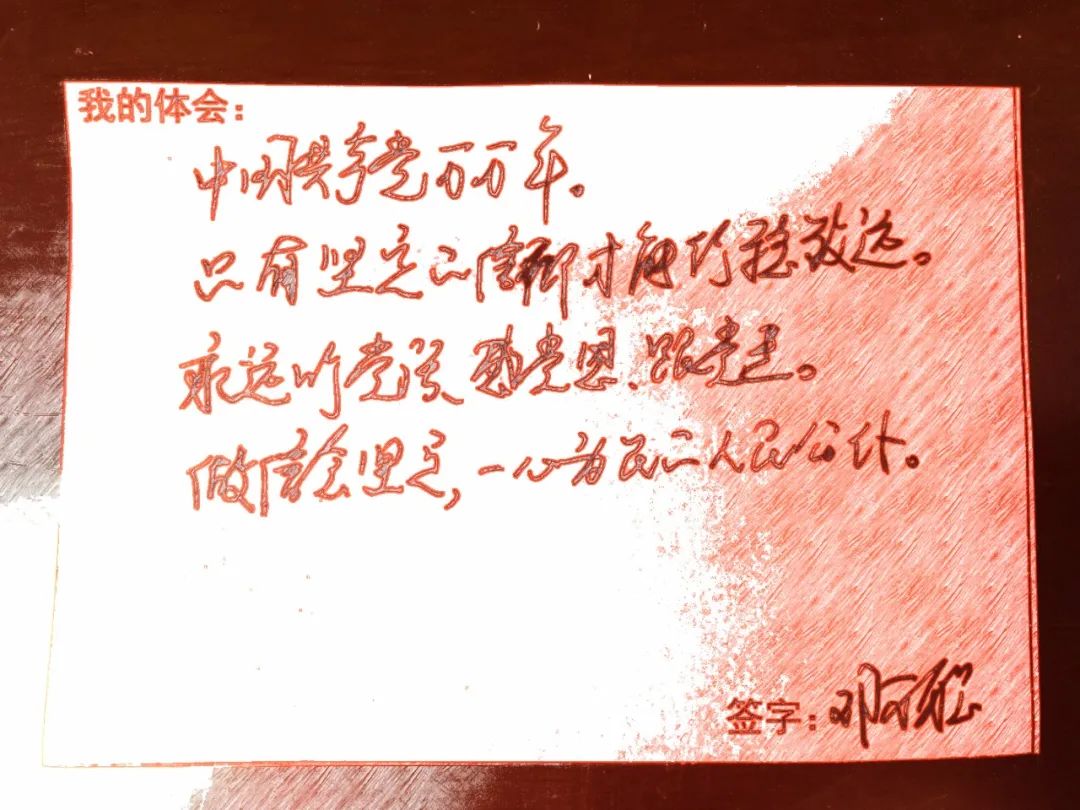 我的体会：
中国共产党万万年。
只有坚定的信仰才能行稳致远。
永远听党话、感党恩、跟党走。
做信念坚定，一心为民的人民公仆。
签字：邓